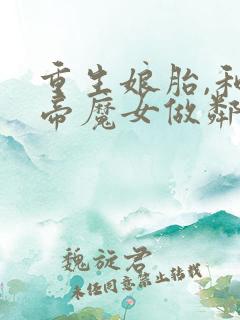 重生娘胎,和
帝魔女做鄰
魏旋君
未经同意禁止转载